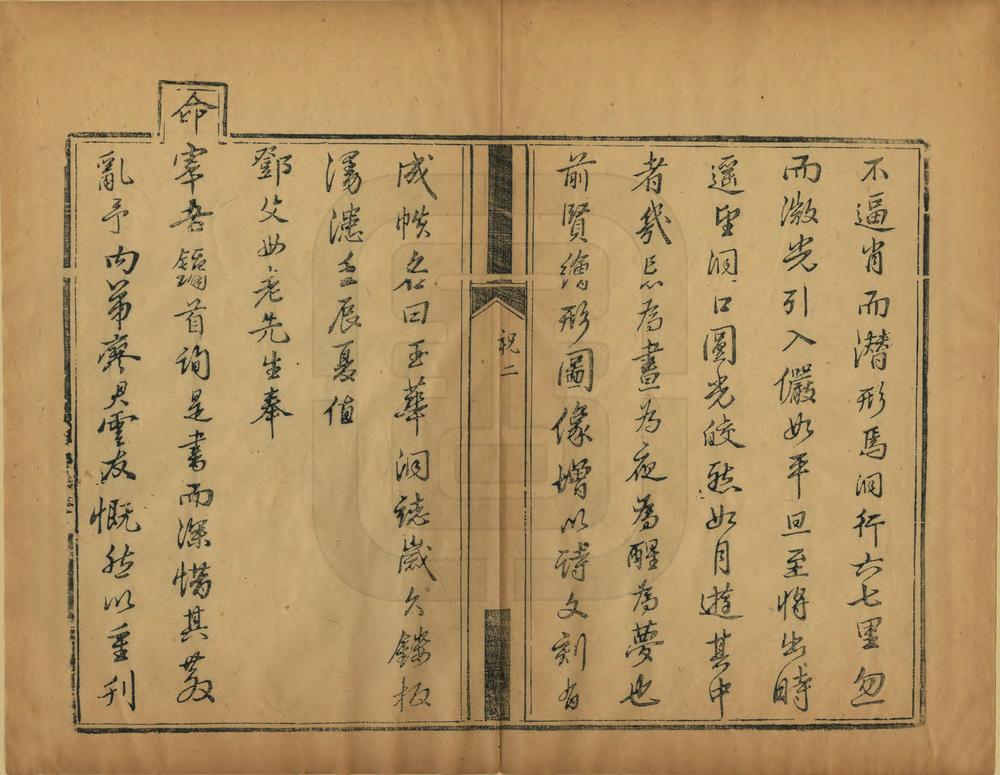 不逼肖而潛形焉洞行六七里忽
而微光引入儼如平旦至將出時
遥望洞口圓光皎然如月遊其中
者幾忘為晝為夜為醒為夢也
前賢繪形圖像增以詩文刻有
祝二
成帙名曰玉華洞誌歲久鏤板
漫漶壬辰夏值
鄧父母老先生奉
命宰吾鏞首詢是書而深惜其
亂予内弟廖君雲友慨然以重刊